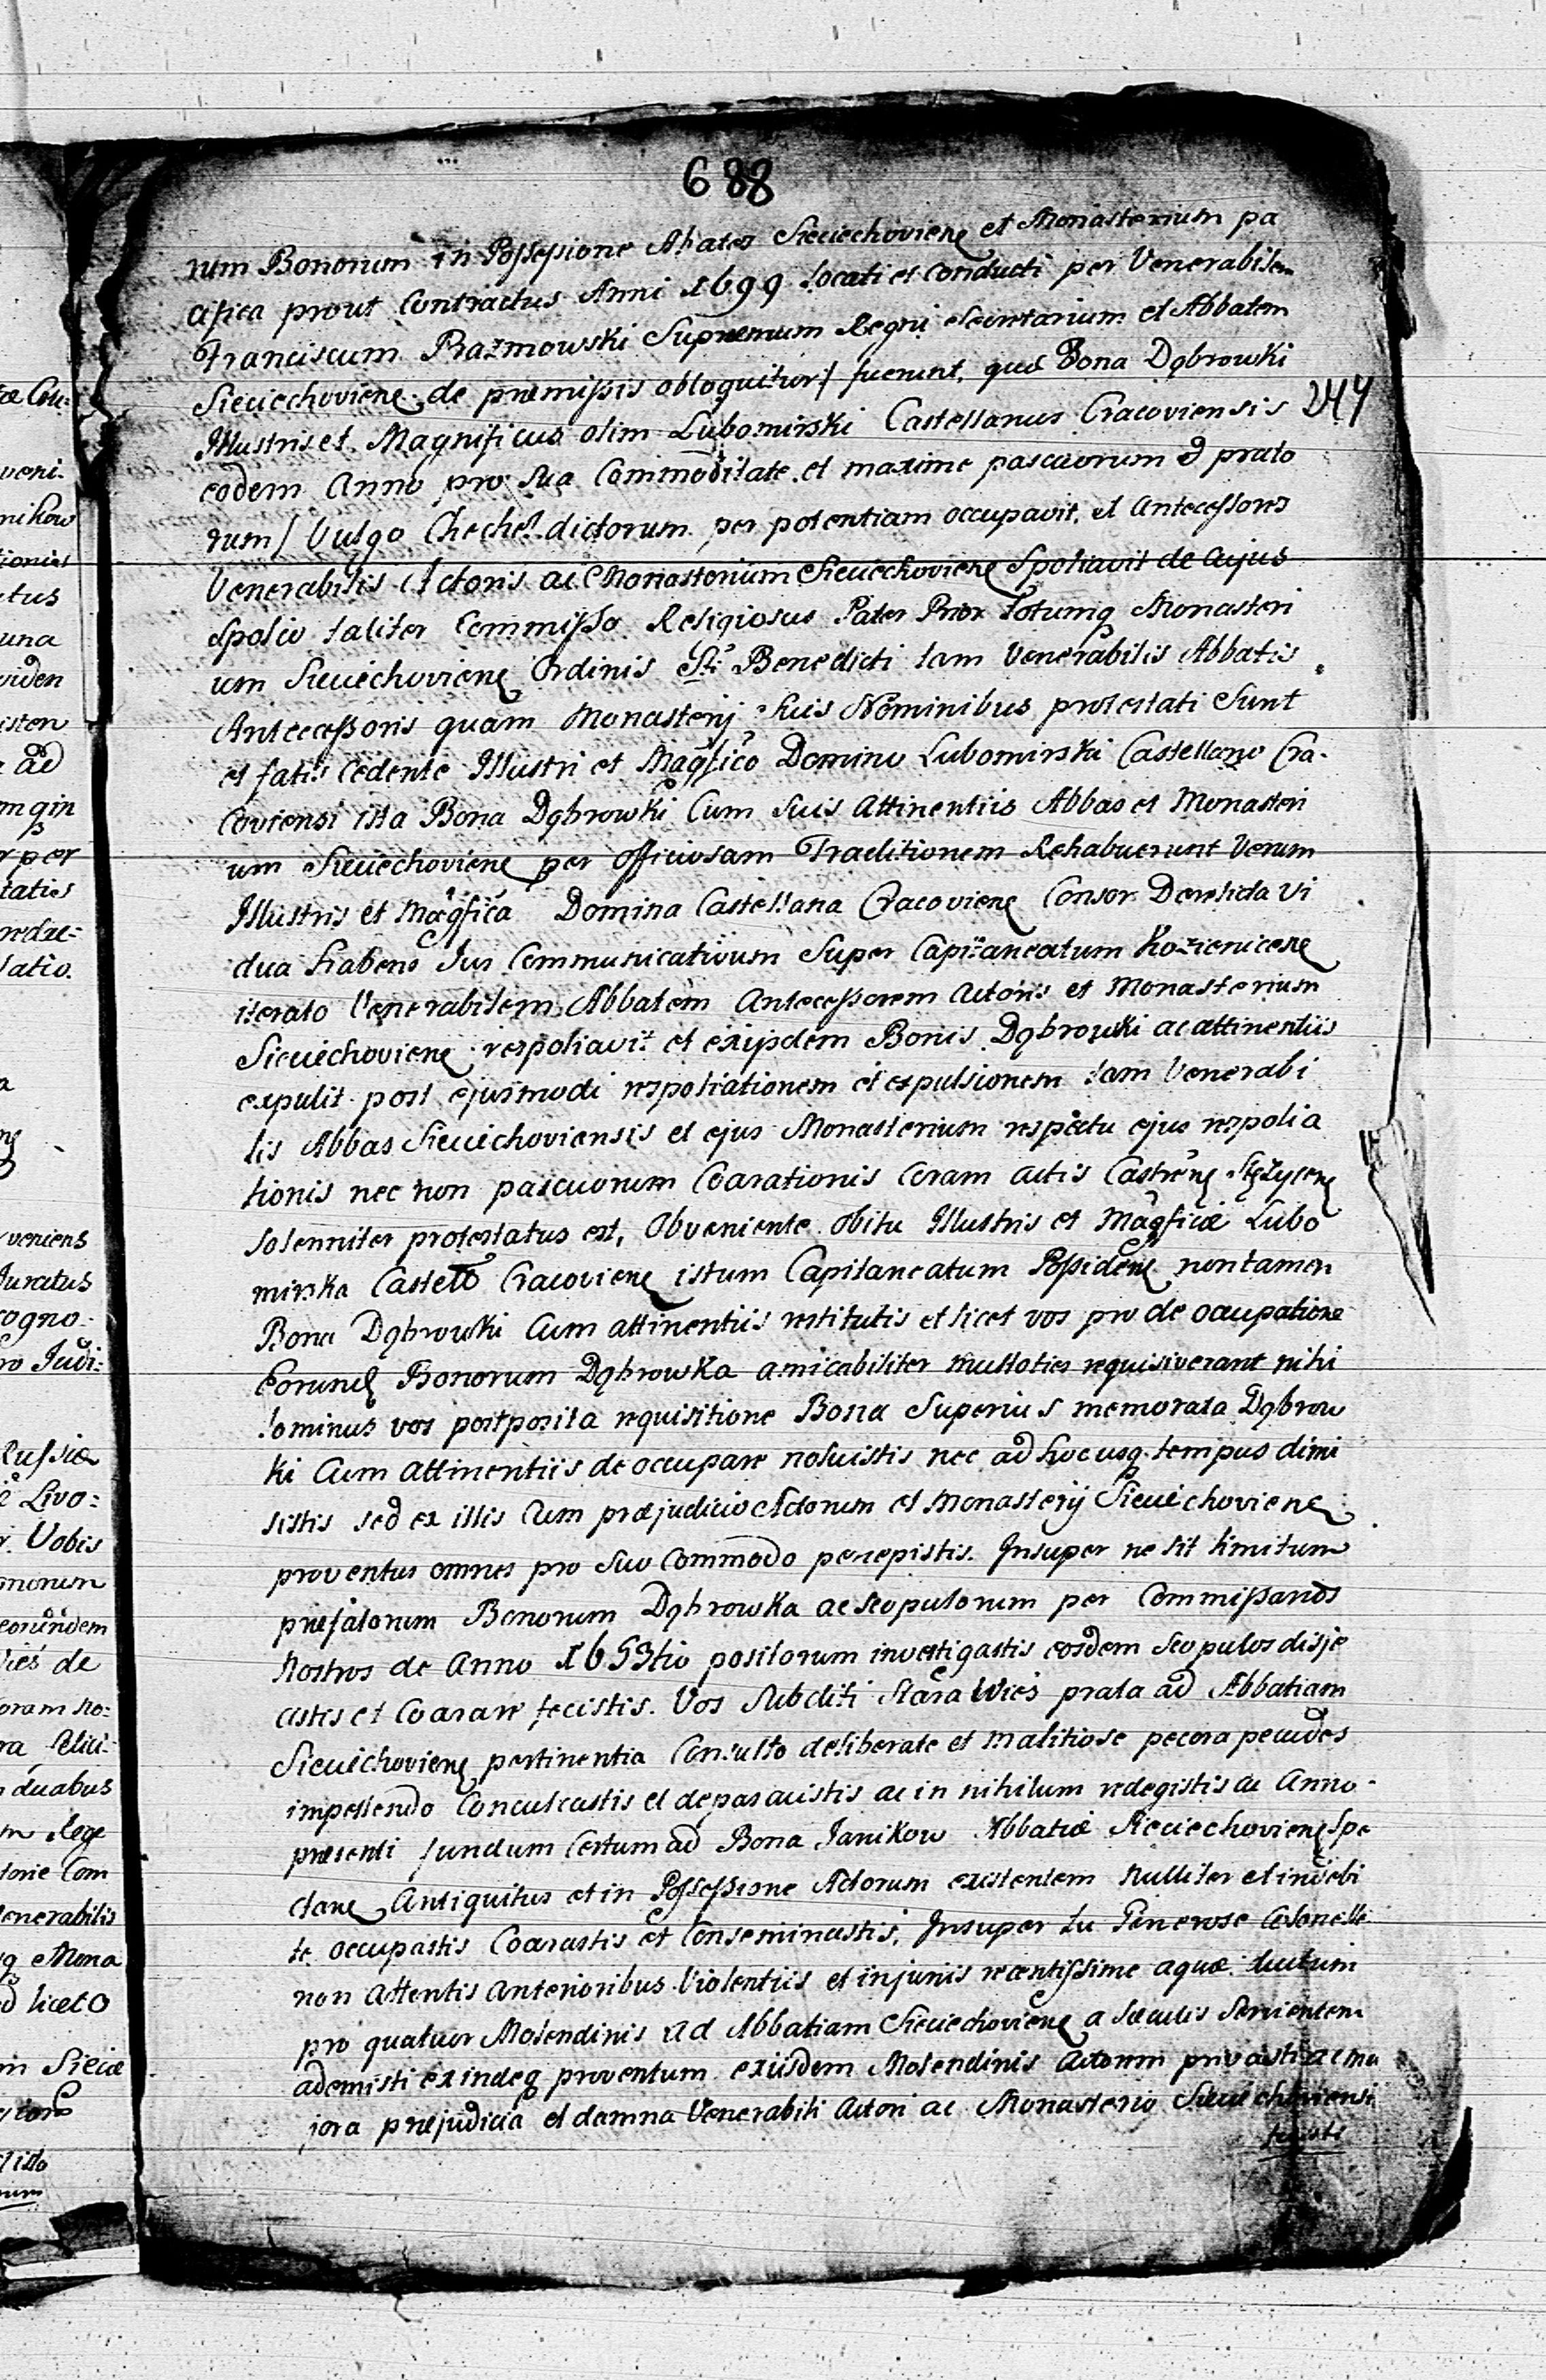 688
rum Bonorum in Possessione Abates Sieciechoviens et Monasterium pa
cifica prout Contractus Anni 1699 locati et Conducti per Venerabilem
Franciscum Prażmowski Supremum Regni Secretarium et Abbatem
Sieciechoviens de premissis obloquitur / fuerunt, quod Bona Dąbrowki
Illustris et Magnificus olim Lubomirski Castellanus Cracoviensis
244
eodem Anno pro sua Commoditate et maxime pascuorum & prato
rum / Vulgo Cheche dictorum per potentiam occupavit, et Antecessores
Venerabilis Actoris ac Monasterium Sieciechoviens Spoliavit de cujus
Spolio taliter Commisso Religiosus Pater Prior totumq Monasteri
um Sieciechoviens Ordinis Sti Benedicti tam Venerabilis Abbatis
Antecessoris quam Monasterij suis Nominibus protestati Sunt
et fatis Cedente Illustri et Magfico Domino Lubomirski Castellano Cra-
coviensi ista Bona Dąbrowki Cum suis Attinentiis Abbas et Monasteri
um Sieciechoviens per Officiosam Traditionem Rehabuerunt Verum
Illustris et Magfica Domina Castellana Cracoviens Consor Derelicta Vi
dua habens Jus Communicativum Super Capitaneatum Kozienicens
iterato Venerabilem Abbatem Antecessorem Actoris et Monasterium
Sieciechoviens respoliavit et exijsdem Bonis Dąbrowki ac attinentiis
expulit post ejusmodi respoliationem et expulsionem tam Venerabi
lis Abbas Sieciechoviensis et ejus Monasterium respectu ejus respolia
tionis nec non pascuorum Coarationis Coram actis Castrens Stężycens
Solenniter protestatus est, Obveniente obitu Illustris et Magficæ Lubo
mirska Castell Cracoviens istum Capitaneatum Possidens non tamen
Bona Dąbrowki Cum attinentiis restitutis et licet vos pro de occupatione
Eorund Bonorum Dąbrowka amicabiliter multoties requisiverant nihi
lominus vos postposita requisitione Bona Superius memorata Dąbrow
ki Cum Attinentiis de occupare noluistis nec ad hocusq tempus dimi
sistis sed ex illis Cum præjudicio Actorum et Monasterij Sieciechoviens
proventus omnes pro Suo Commodo percepistis. Insuper ne sit limitum
præfatorum Bonorum Dąbrowka ac scopulorum per Commissarios
Nostros de Anno 1653tio positorum investigastis eosdem Scopulos disje
cistis et Coarare fecistis. Vos Subditi Stara Wieś prata ad Abbatiam
Sieciechoviens pertinentia Consulto deliberate et malitiose pecora pecudes
impellendo Conculcastis et depascuistis ac in nihilum redegistis ac Anno
presenti fundum Certum ad Bona Janikow Abbatiæ Sieciechoviens Spe
ctans Antiquitus et in Possessione Actorum existentem Nulliter et indebi
te occupastis Coarastis et Conseminastis, Insuper tu Generose Colonelle
non attentis Anterioribus Violentiis et injuriis recentissime aquæ
pro quatuor Molendinis ad Abbatiam Sieciechoviens a Sæculis Servientem
ademisti exindeq proventum exiisdem Molendinis Actorem privasti ac ma
jora præjudicia et damna Venerabili Actori ac Monasterio Sieciechoviensi